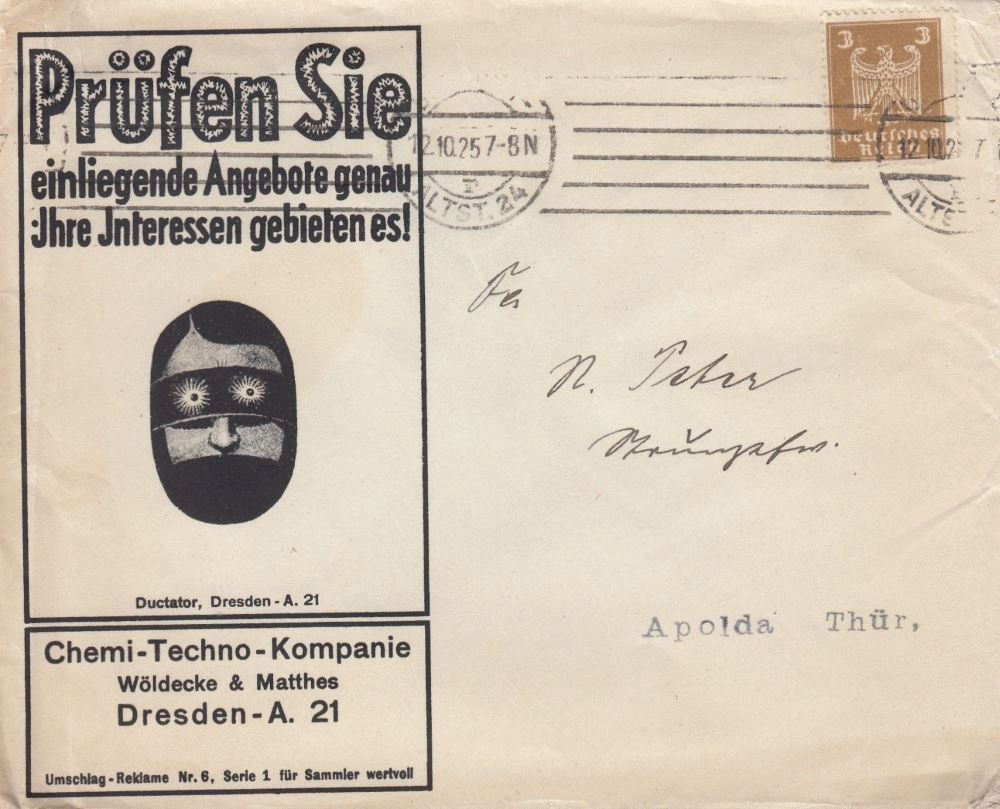 Prüfen Sie
einliegende Angebote genau
Jhre Jnteressen gebieten es!
Ductator, Dresden-A. 21
Chemi-Techno-Kompanie
Wöldecke & Matthes
Dresden-A. 21
Umschlag-Reklame Nr. 6, Serie 1 für Sammler wertvoll
12.10.25 7-8 N
ALTST. 24
3 3
Deutsches
Reich
12.10.2
ALTS
N. Peter
Apolda Thür,